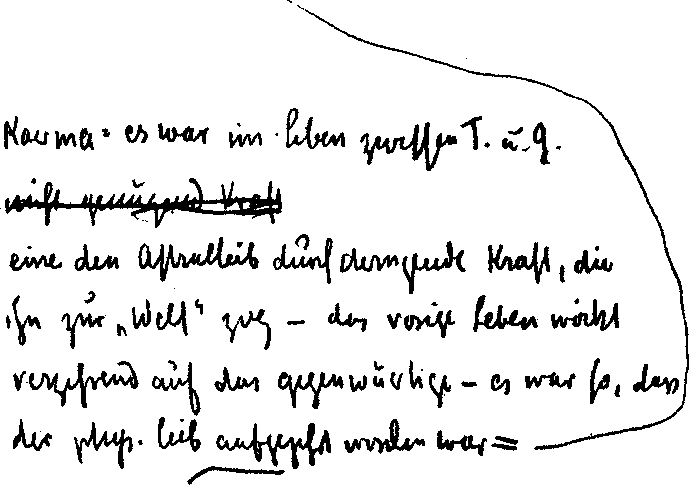 Karma = es war im Leben zwischen T. u. G.
nicht genügend Kraft
eine den Astralleib durchdringende Kraft, die
ihn zur „Welt“ zog – das vorige Leben wirkt
verzehrend auf das gegenwärtige – es war so, dass
der phys. Leib aufgezehrt worden war =